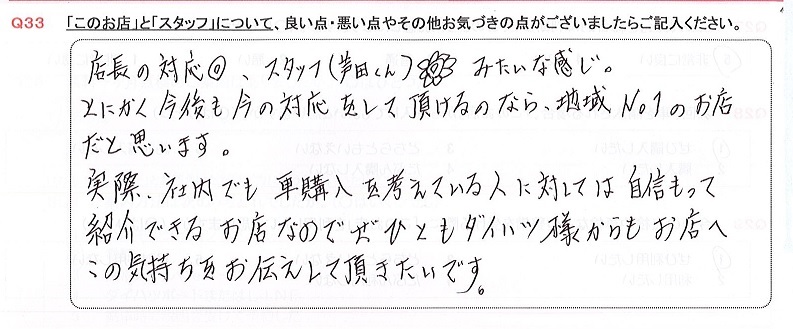 Q33 「このお店」と「スタッフ」について、良い点・悪い点やその他お気づきの点がございましたらご記入ください。
店長の対応◎、スタッフ(芦田くん) みたいな感じ。
とにかく今後も今の対応をして頂けるのなら、地域No.1のお店
だと思います。
実際、社内でも車購入を考えている人に対しては自信もって
紹介できるお店なのでぜひともダイハツ様からもお店へ
この気持ちをお伝えして頂きたいです。